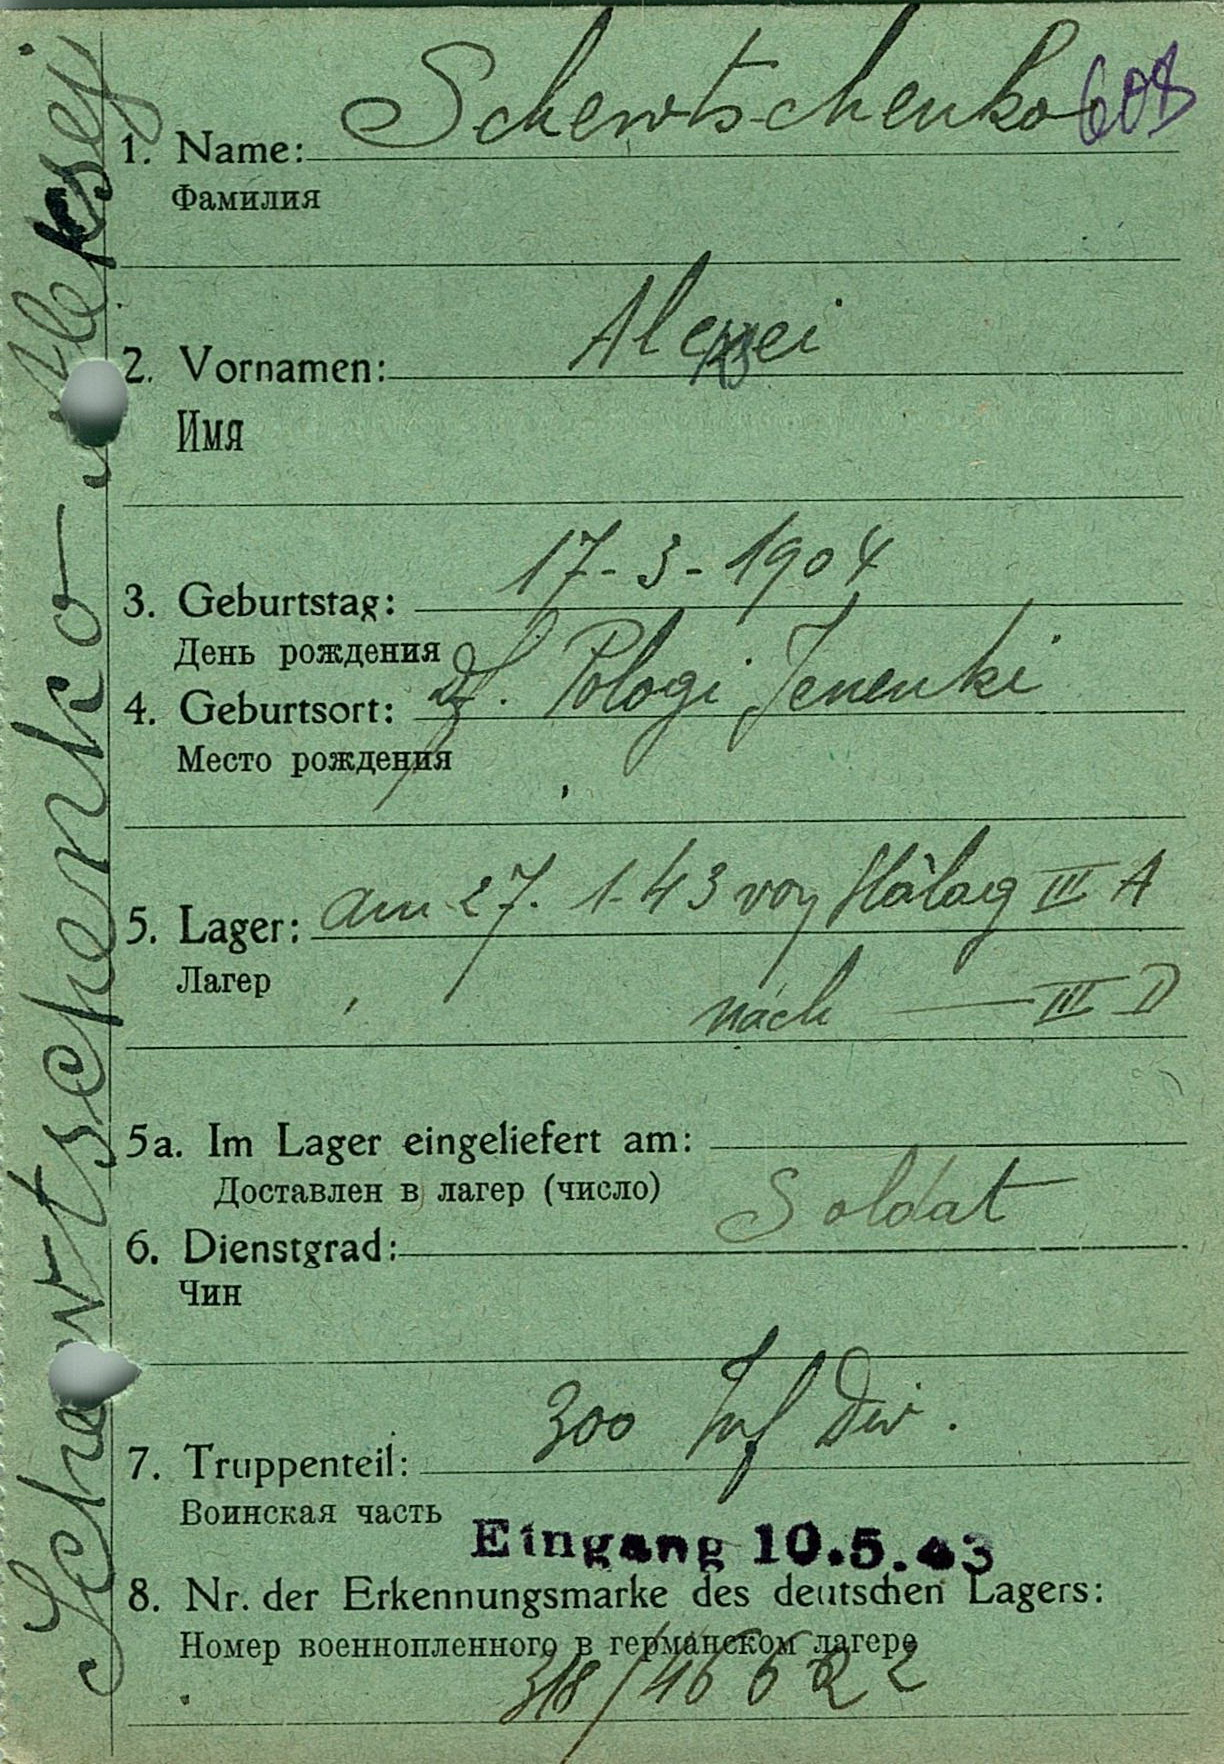 Schewtschenko Aleksej
1. Name: Schewtschenko 608
Фамилия
2. Vornamen: Aleksei
Имя
3. Geburtstag: 17-3-1904
День рождения
4. Geburtsort: Pologi Jenenki
Место рождения
5. Lager: am 27. 1. 43 von Stalag III A
Лагер nach — III D
5a. Im Lager eingeliefert am:
Доставлен в лагер (число)
6. Dienstgrad: Soldat
Чин
7. Truppenteil: 300 Inf Div.
Воинская часть
Eingang 10.5.43
8. Nr. der Erkennungsmarke des deutschen Lagers:
Номер военнопленного в германском лагере
318/46622